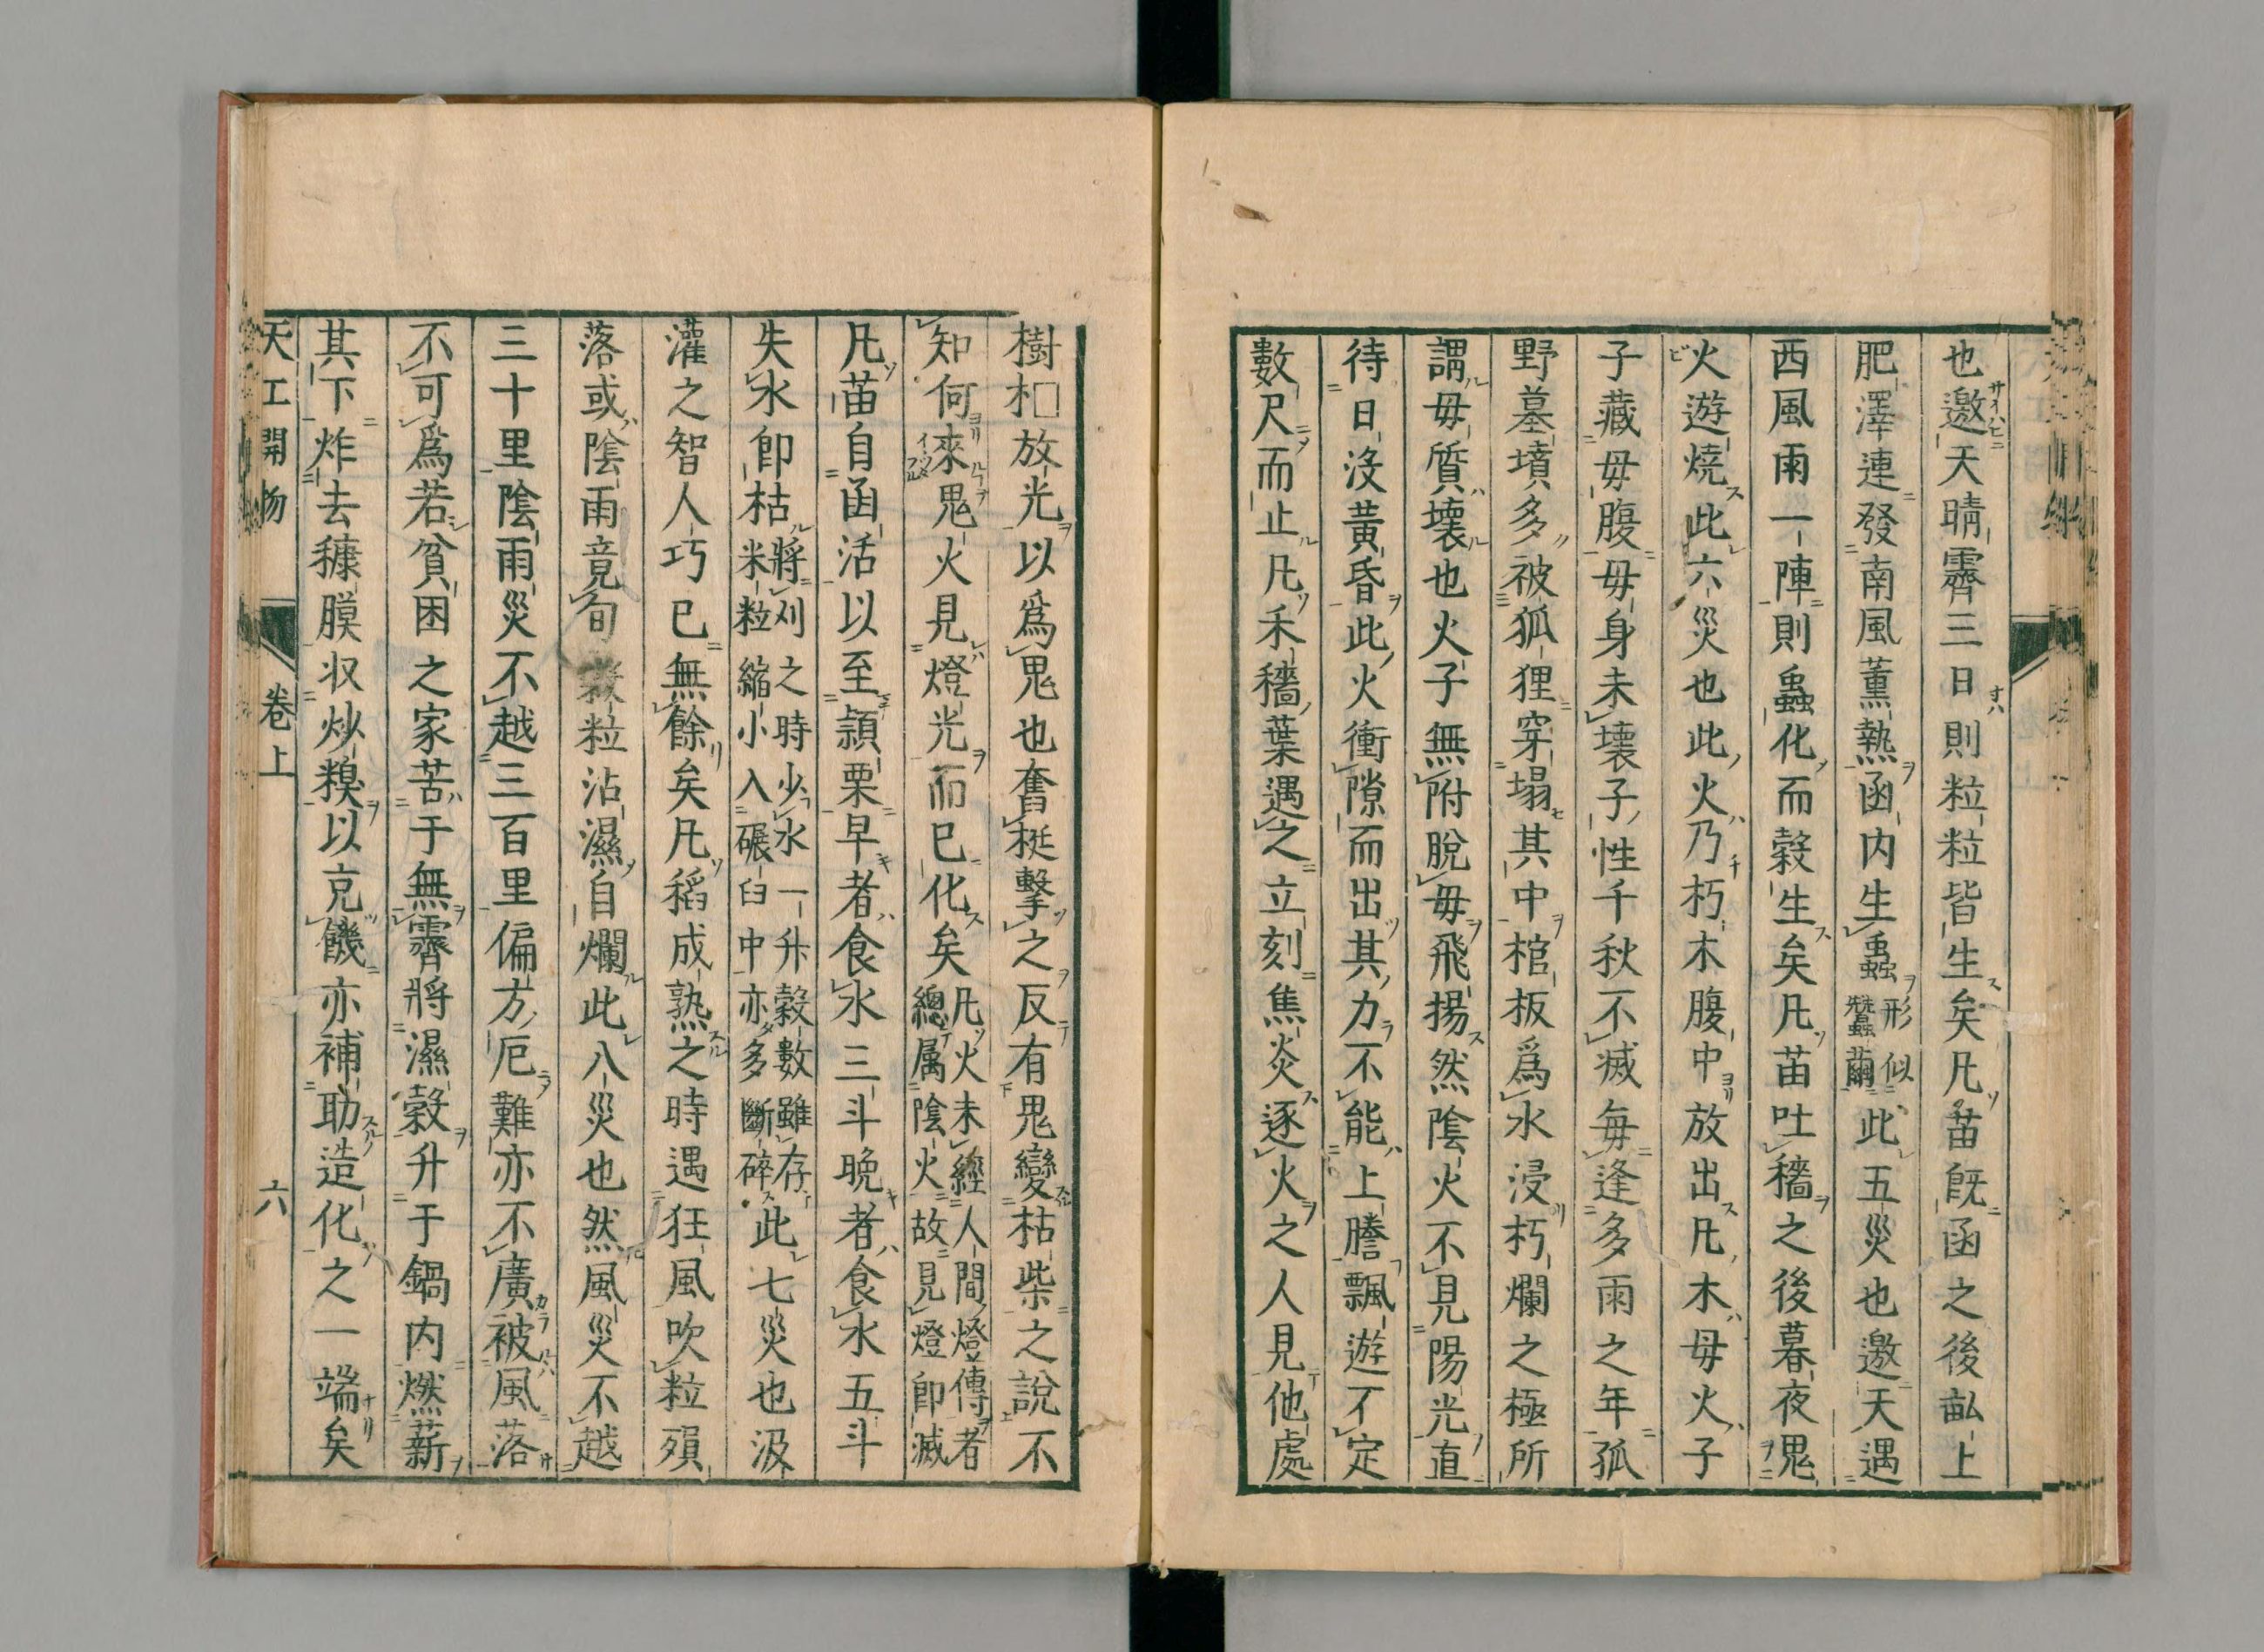 也邀天晴霽三日則粒粒皆生矣凡苗旣函之後畝上
肥澤連發南風薰熱函内生蟲形似蠶繭此五災也邀天遇
西風雨一陣則蟲化而穀生矣凡苗吐穡之後暮夜鬼
火遊燒此六災也此火乃朽木腹中放出凡木母火子
子藏母腹母身未壞子性千秋不滅毎逢多雨之年孤
野墓墳多被狐狸穿塌其中棺板爲水浸朽爛之極所
謂母質壞也火子無附脫母飛揚然陰火不見陽光直
待日沒黃昏此火衝隙而出其力不能上騰飄遊不定
數尺而止凡禾穡葉遇之立刻焦炎逐火之人見他處
樹放光以爲鬼也奮梃擊之反有鬼變枯柴之說不
知何來鬼火見燈光而已化矣凡火未經人間燈傳者總属陰火故見燈卽滅
凡苗自函活以至頴栗早者食水三斗晚者食水五斗
失水卽枯將刈之時少水一升穀數雖存米粒縮小入碾臼中亦多斷碎此七災也汲
灌之智人巧已無餘矣凡稻成熟之時遇狂風吹粒殞
落或陰雨竟旬穀粒沾濕自爛此八災也然風災不越
三十里陰雨災不越三百里偏方厄難亦不廣被風落
不可爲若貧困之家苦于無霽將濕穀升于鍋内燃薪
其下炸去糠膜収炒糗以充饑亦補助造化之一端矣
天工開物 卷上 六